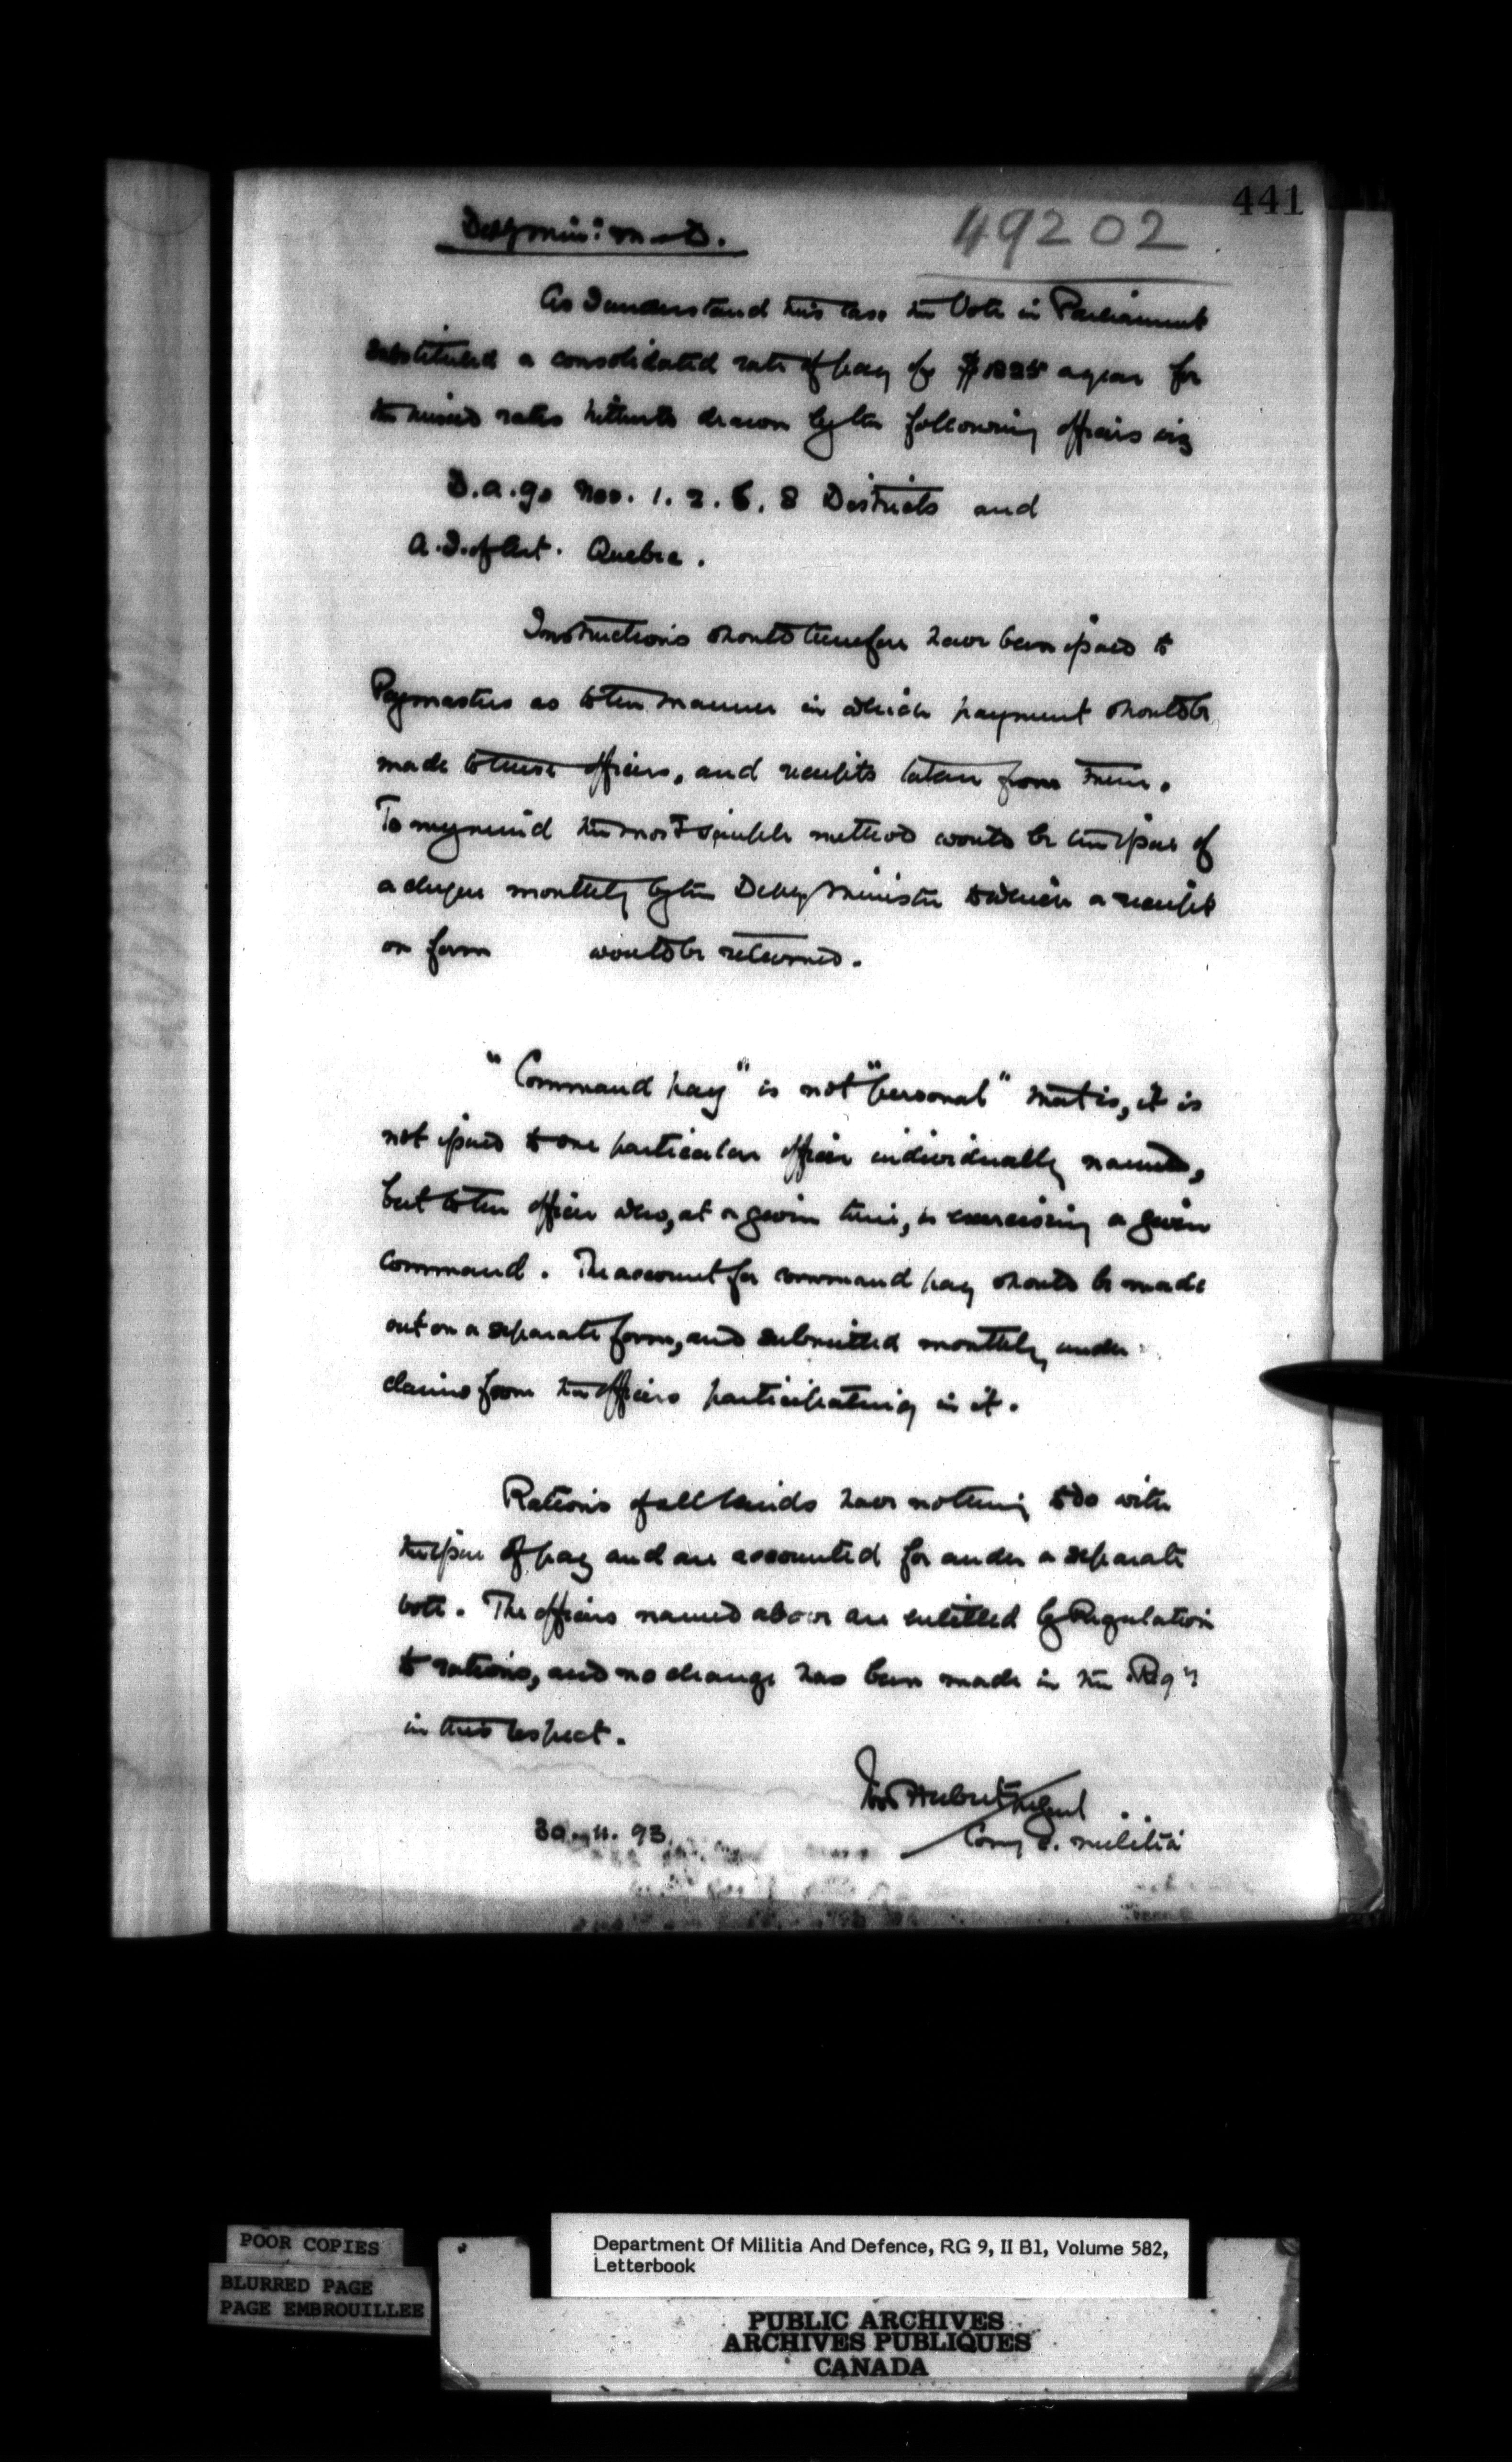 441
49202
Dep Minr: M & D.
As I understand this case the Vote in Parliament
substituted a consolidated rate of pay of $1825 a year for
the mixed rates hitherto drawn by the following officers viz
D.A.Gs Nos. 1. 2. 5. 8 Districts and
A.I. of Art. Quebec.
Instructions should therefore have been issued to
Paymasters as to the manner in which payment should be
made to these officers, and receipts taken from them.
To my mind the most simple method would be the issue of
a cheque monthly by the Depy Minister to which a receipt
on form would be returned.
"Command pay" is not "personal" that is, it is
not issued to one particular officer individually named,
but to the officer who, at a given time, is exercising a given
command. The account for command pay should be made
out on a separate form, and submitted monthly, under
claims from the officers participating in it.
Rations of all kinds have nothing to do with
the issue of pay and are accounted for under a separate
vote. The officers named above are entitled by Regulation
to rations, and no change has been made in the Regns
in this respect.
Ivor Herbert M Genl
30.11.93.
Comg C. Militia
POOR COPIES
BLURRED PAGE
PAGE EMBROUILLEE
Department Of Militia And Defence, RG 9, II B1, Volume 582,
Letterbook
PUBLIC ARCHIVES
ARCHIVES PUBLIQUES
CANADA